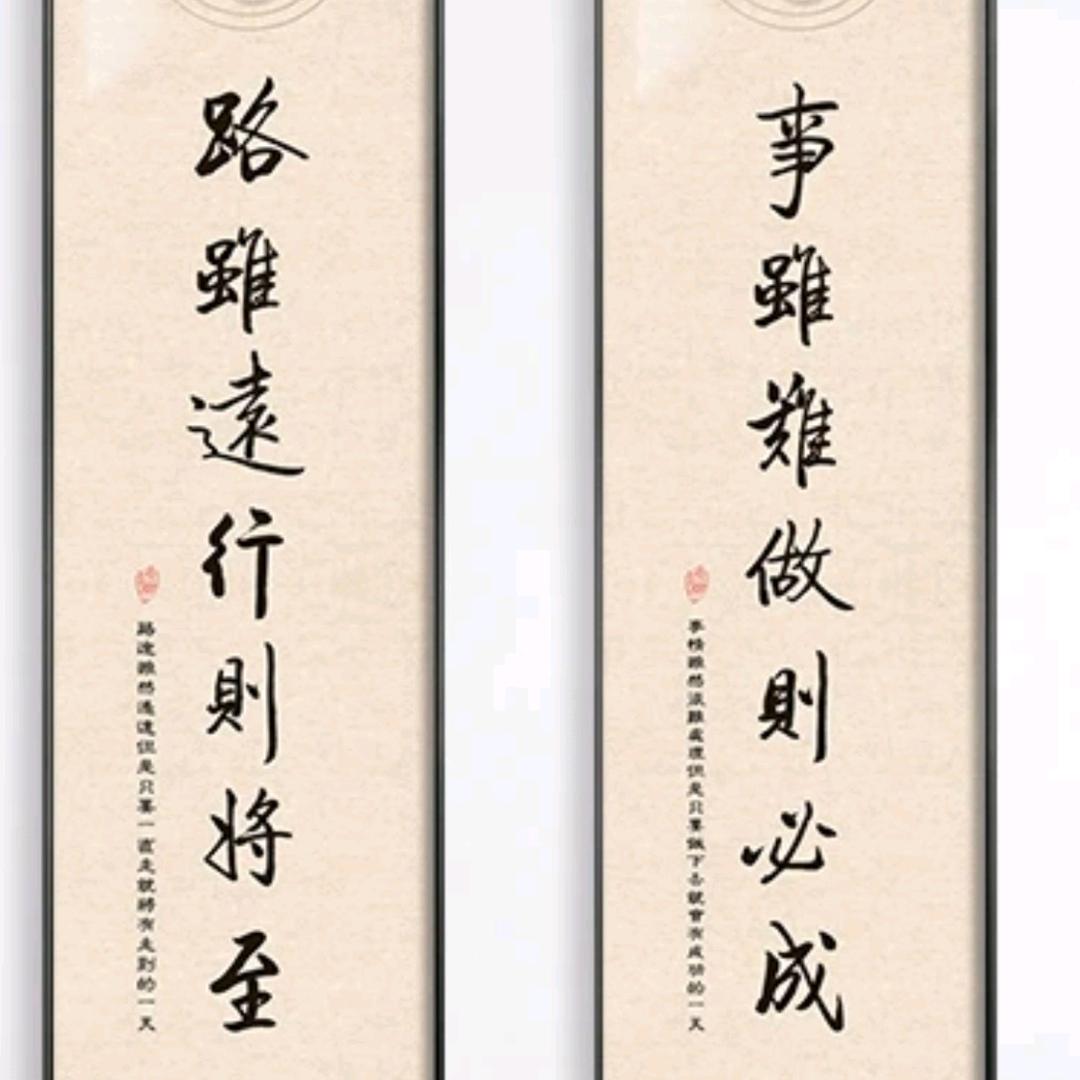 路雖遠行則將至
路途雖然遙遠但是只要一直走就將有走到的一天
事雖難做則必成
事情雖然很難處理但是只要做下去就會有成功的一天